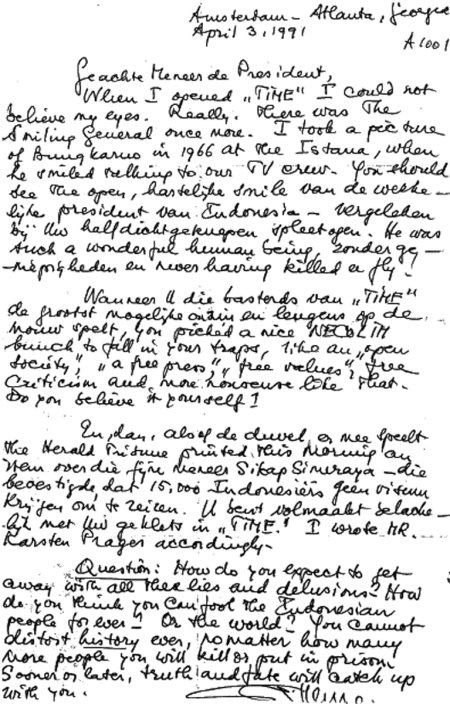 Amsterdam - Atlanta, Georgea
April 3, 1991
A 1001
Geachte Meneer de President,
When I opened „TIME" I could not
believe my eyes. Really. There was The
Smiling General once more. I took a picture
of Bung Karno in 1966 at the Istana, when
he smiled talking to our TV crew. You should
see the open, hartelijke smile van de werke-
lijke president van Indonesia - vergeleken
bij Uw half dichtgeknepen spleetogen. He was
such a wonderful human being, zonder ge-
-niepigheden en never having killed a fly.
Wanneer U die basterds van „TIME"
de grootst mogelijke onzin en leugens op de
mouw spelt, you picked a nice NECOLIM
bunch to fall in your traps, like an „open
society", „a free press", „free values", free
criticism and more nonsense like that.
Do you believe it yourself!
En, dan, alsof de duvel er mee speelt
the Herald Tribune printed this morning an
item over die fijne meneer Sitap Simuraya - die
bevestigde, dat 15,000 Indonesiërs geen visum
krijgen om te reizen. U bent volmaakt belache-
lijk met Uw geklets in „TIME." I wrote MR.
Karsten Prager accordingly.
Question: How do you expect to get
away with all these lies and delusions? How
do you think you can fool the Indonesian
people for ever? Or the world? You cannot
distort history ever, no matter how many
more people you will kill or put in prison
Sooner or later, truth and fate will catch up
with you.